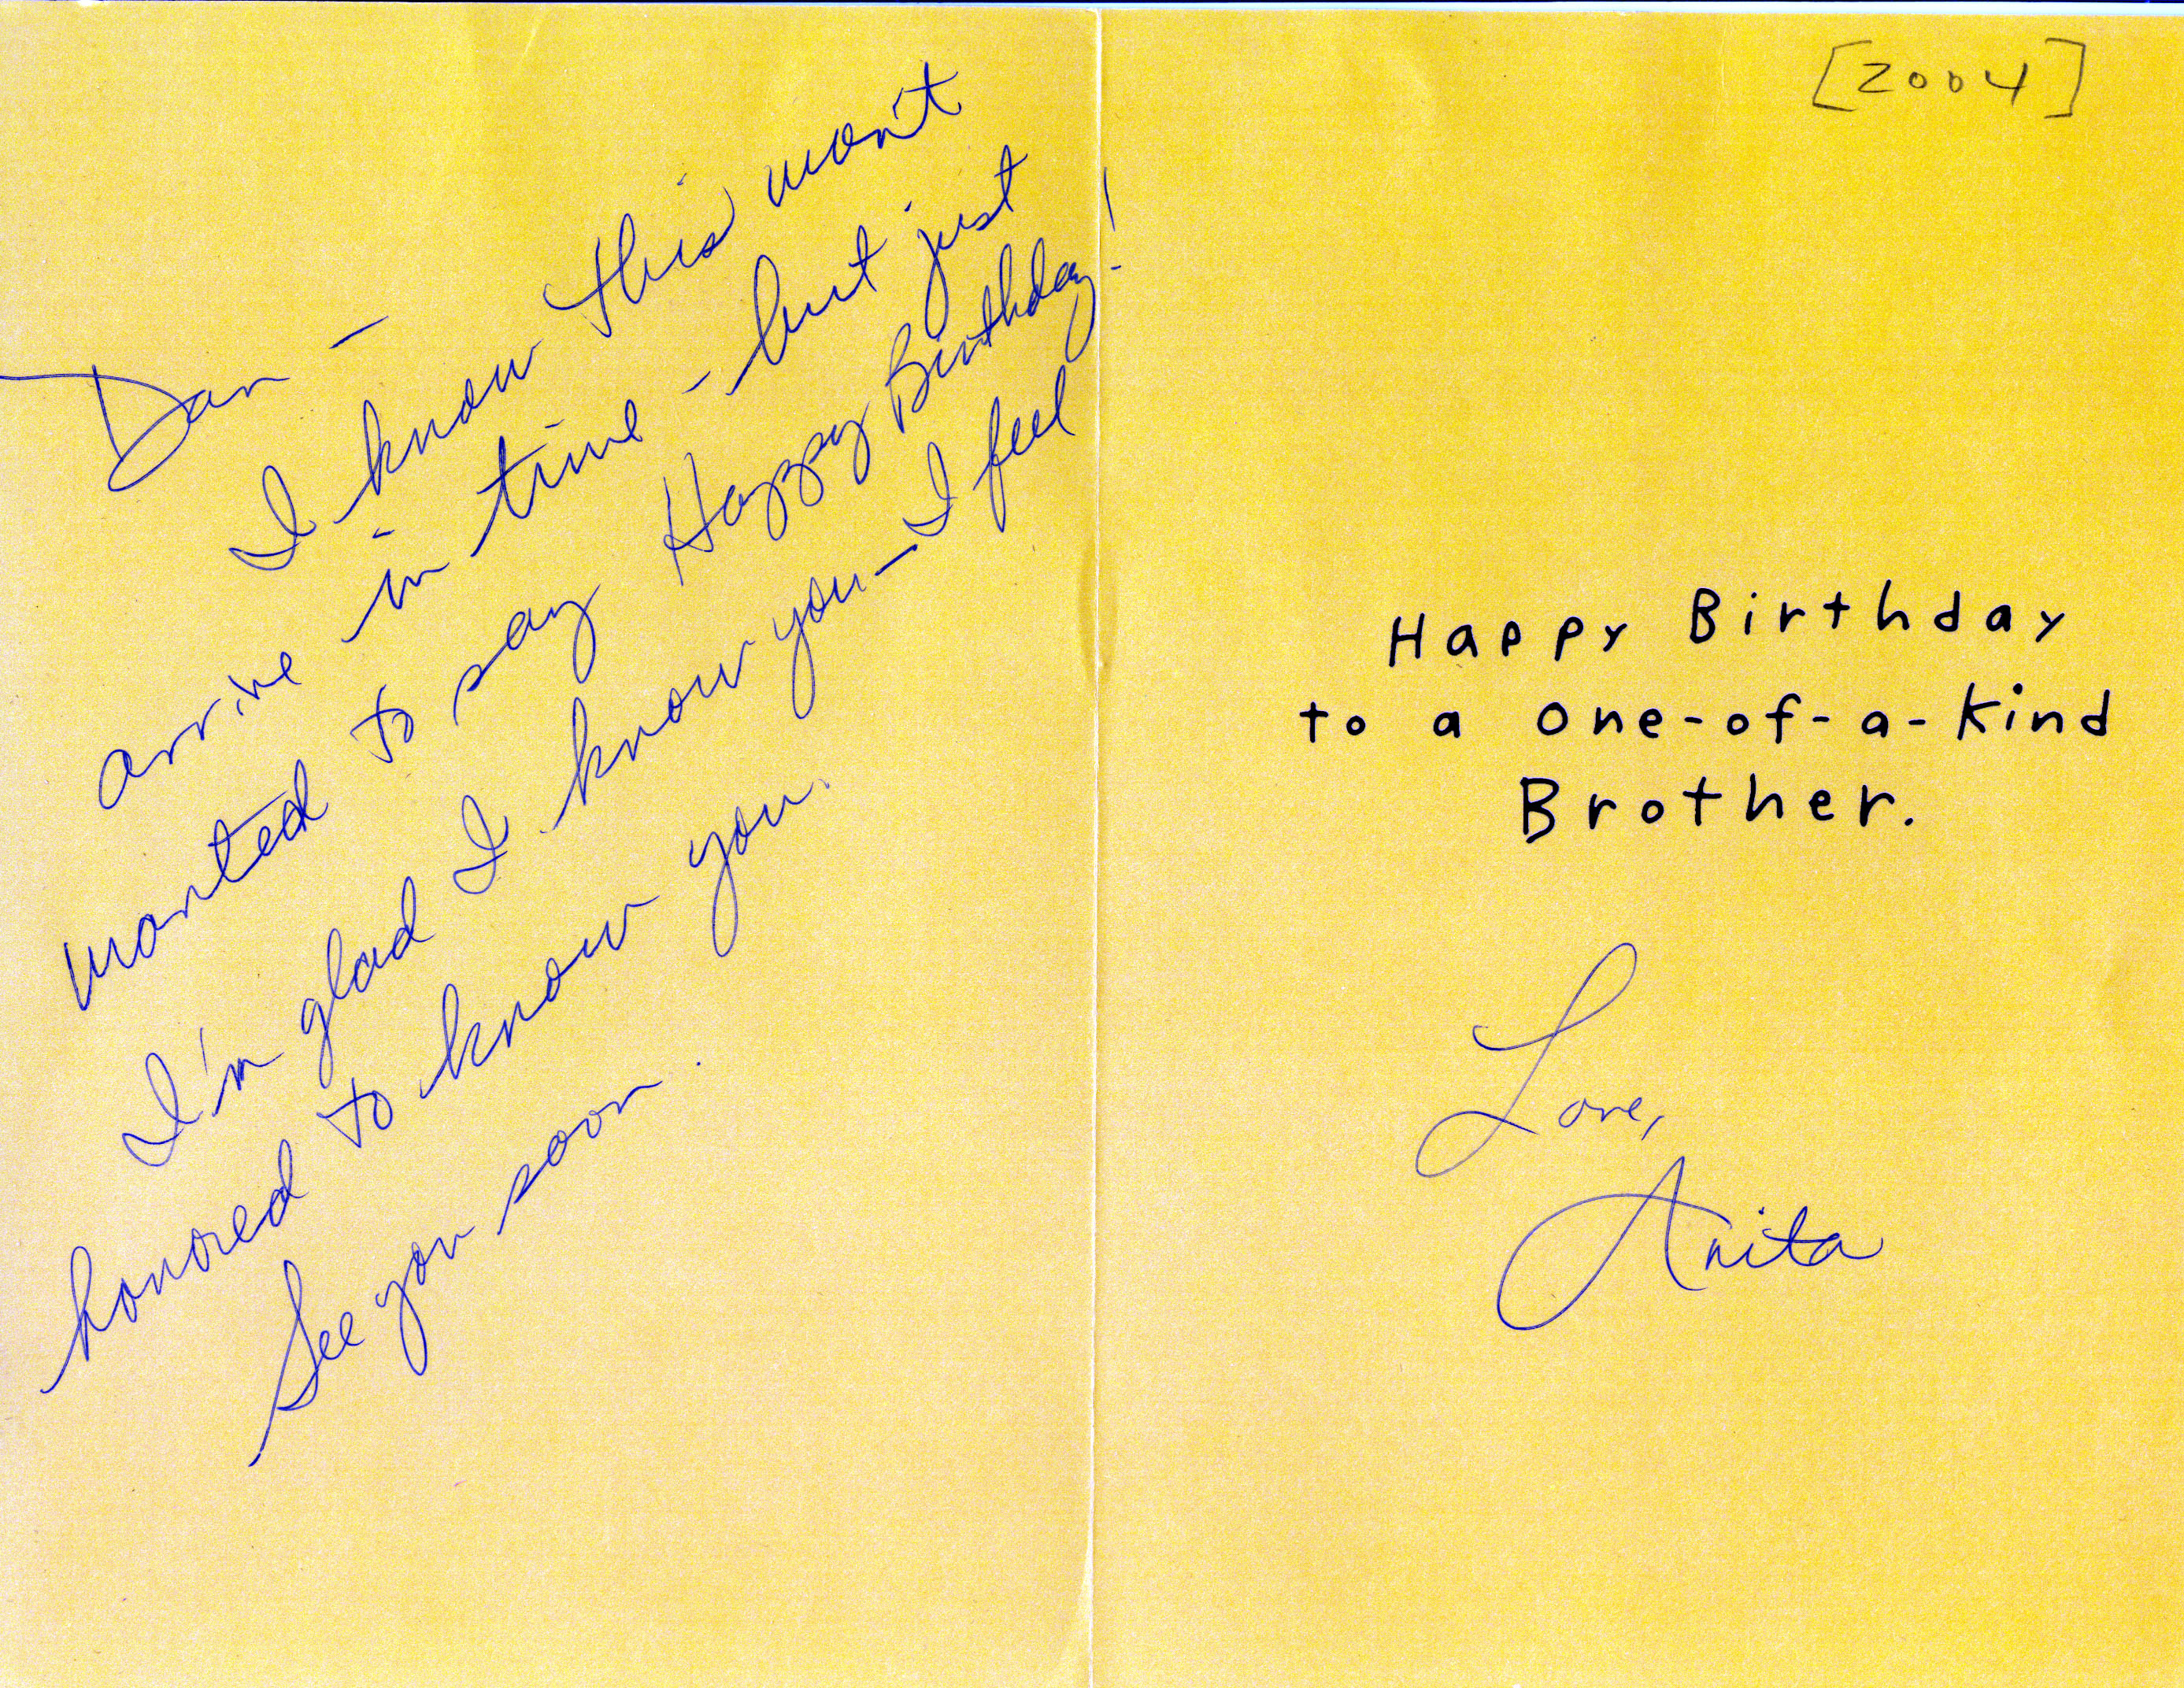 Dan –
I know this won't
arrive in time – but just
wanted to say Happy Birthday!
I'm glad I know you – I feel
honored to know you.
See you soon.
[2004]
Happy Birthday
to a one-of-a-kind
Brother.
Love,
Anita